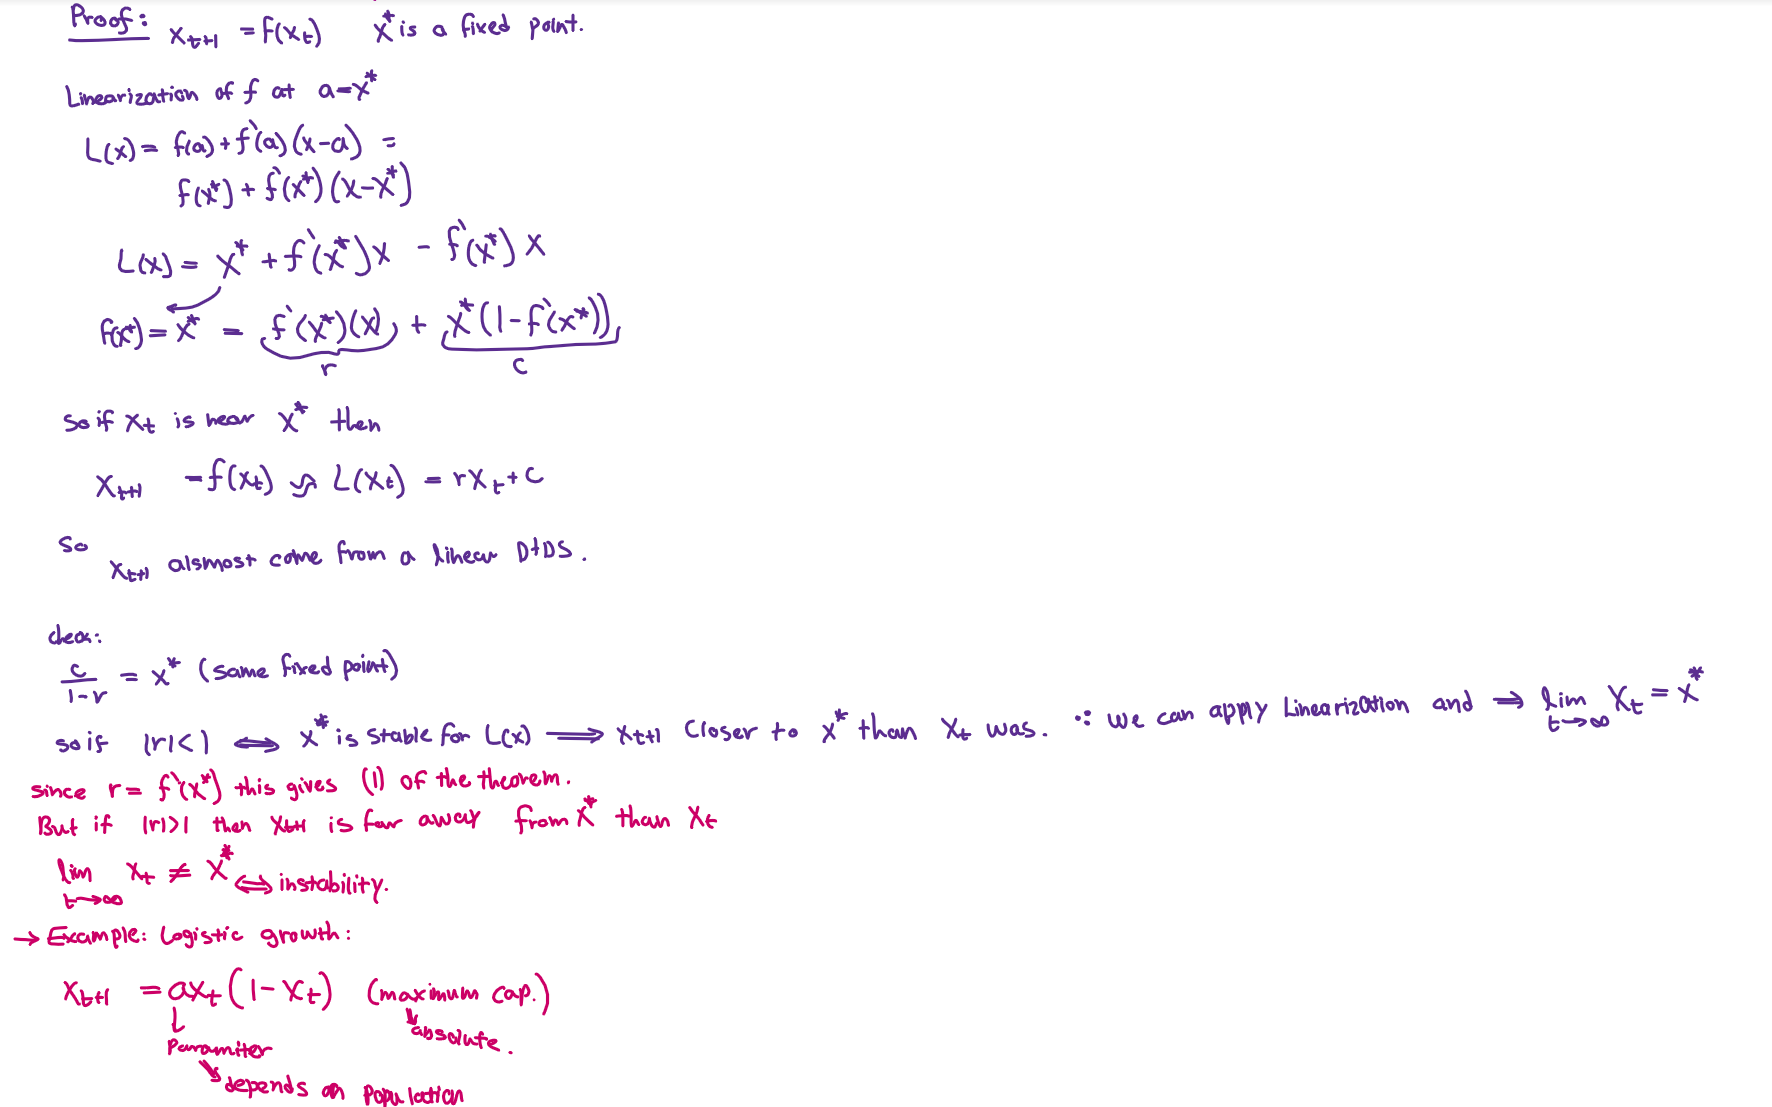 Proof: x_{t+1} = f(x_t) x* is a fixed point.
Linearization of f at a=x*
L(x) = f(a) + f`(a)(x-a) =
f(x*) + f`(x*)(x-x*)
L(x) = x* + f`(x*)x - f`(x*)x
f(x*) = x* = f`(x*)(x) + x*(1-f`(x*))
r c
so if x_t is near x* then
x_{t+1} = f(x_t) ≈ L(x_t) = rx_t + c
so
x_{t+1} alsmost come from a linear DTDS.
c/(1-r) = x* (same fixed point)
so if |r|<1 ⟺ x* is stable for L(x) ⟹ x_{t+1} closer to x* than x_t was. ∴ we can apply Linearization and ⟹ lim_{t→∞} x_t = x*
since r = f`(x*) this gives (1) of the theorem.
But if |r|>1 then x_{t+1} is far away from x* than x_t
lim_{t→∞} x_t ≠ x* ⟺ instability.
→ Example: Logistic growth:
x_{t+1} = ax_t(1-x_t) (maximum cap.)
absolute.
Paramiter
depends on Population